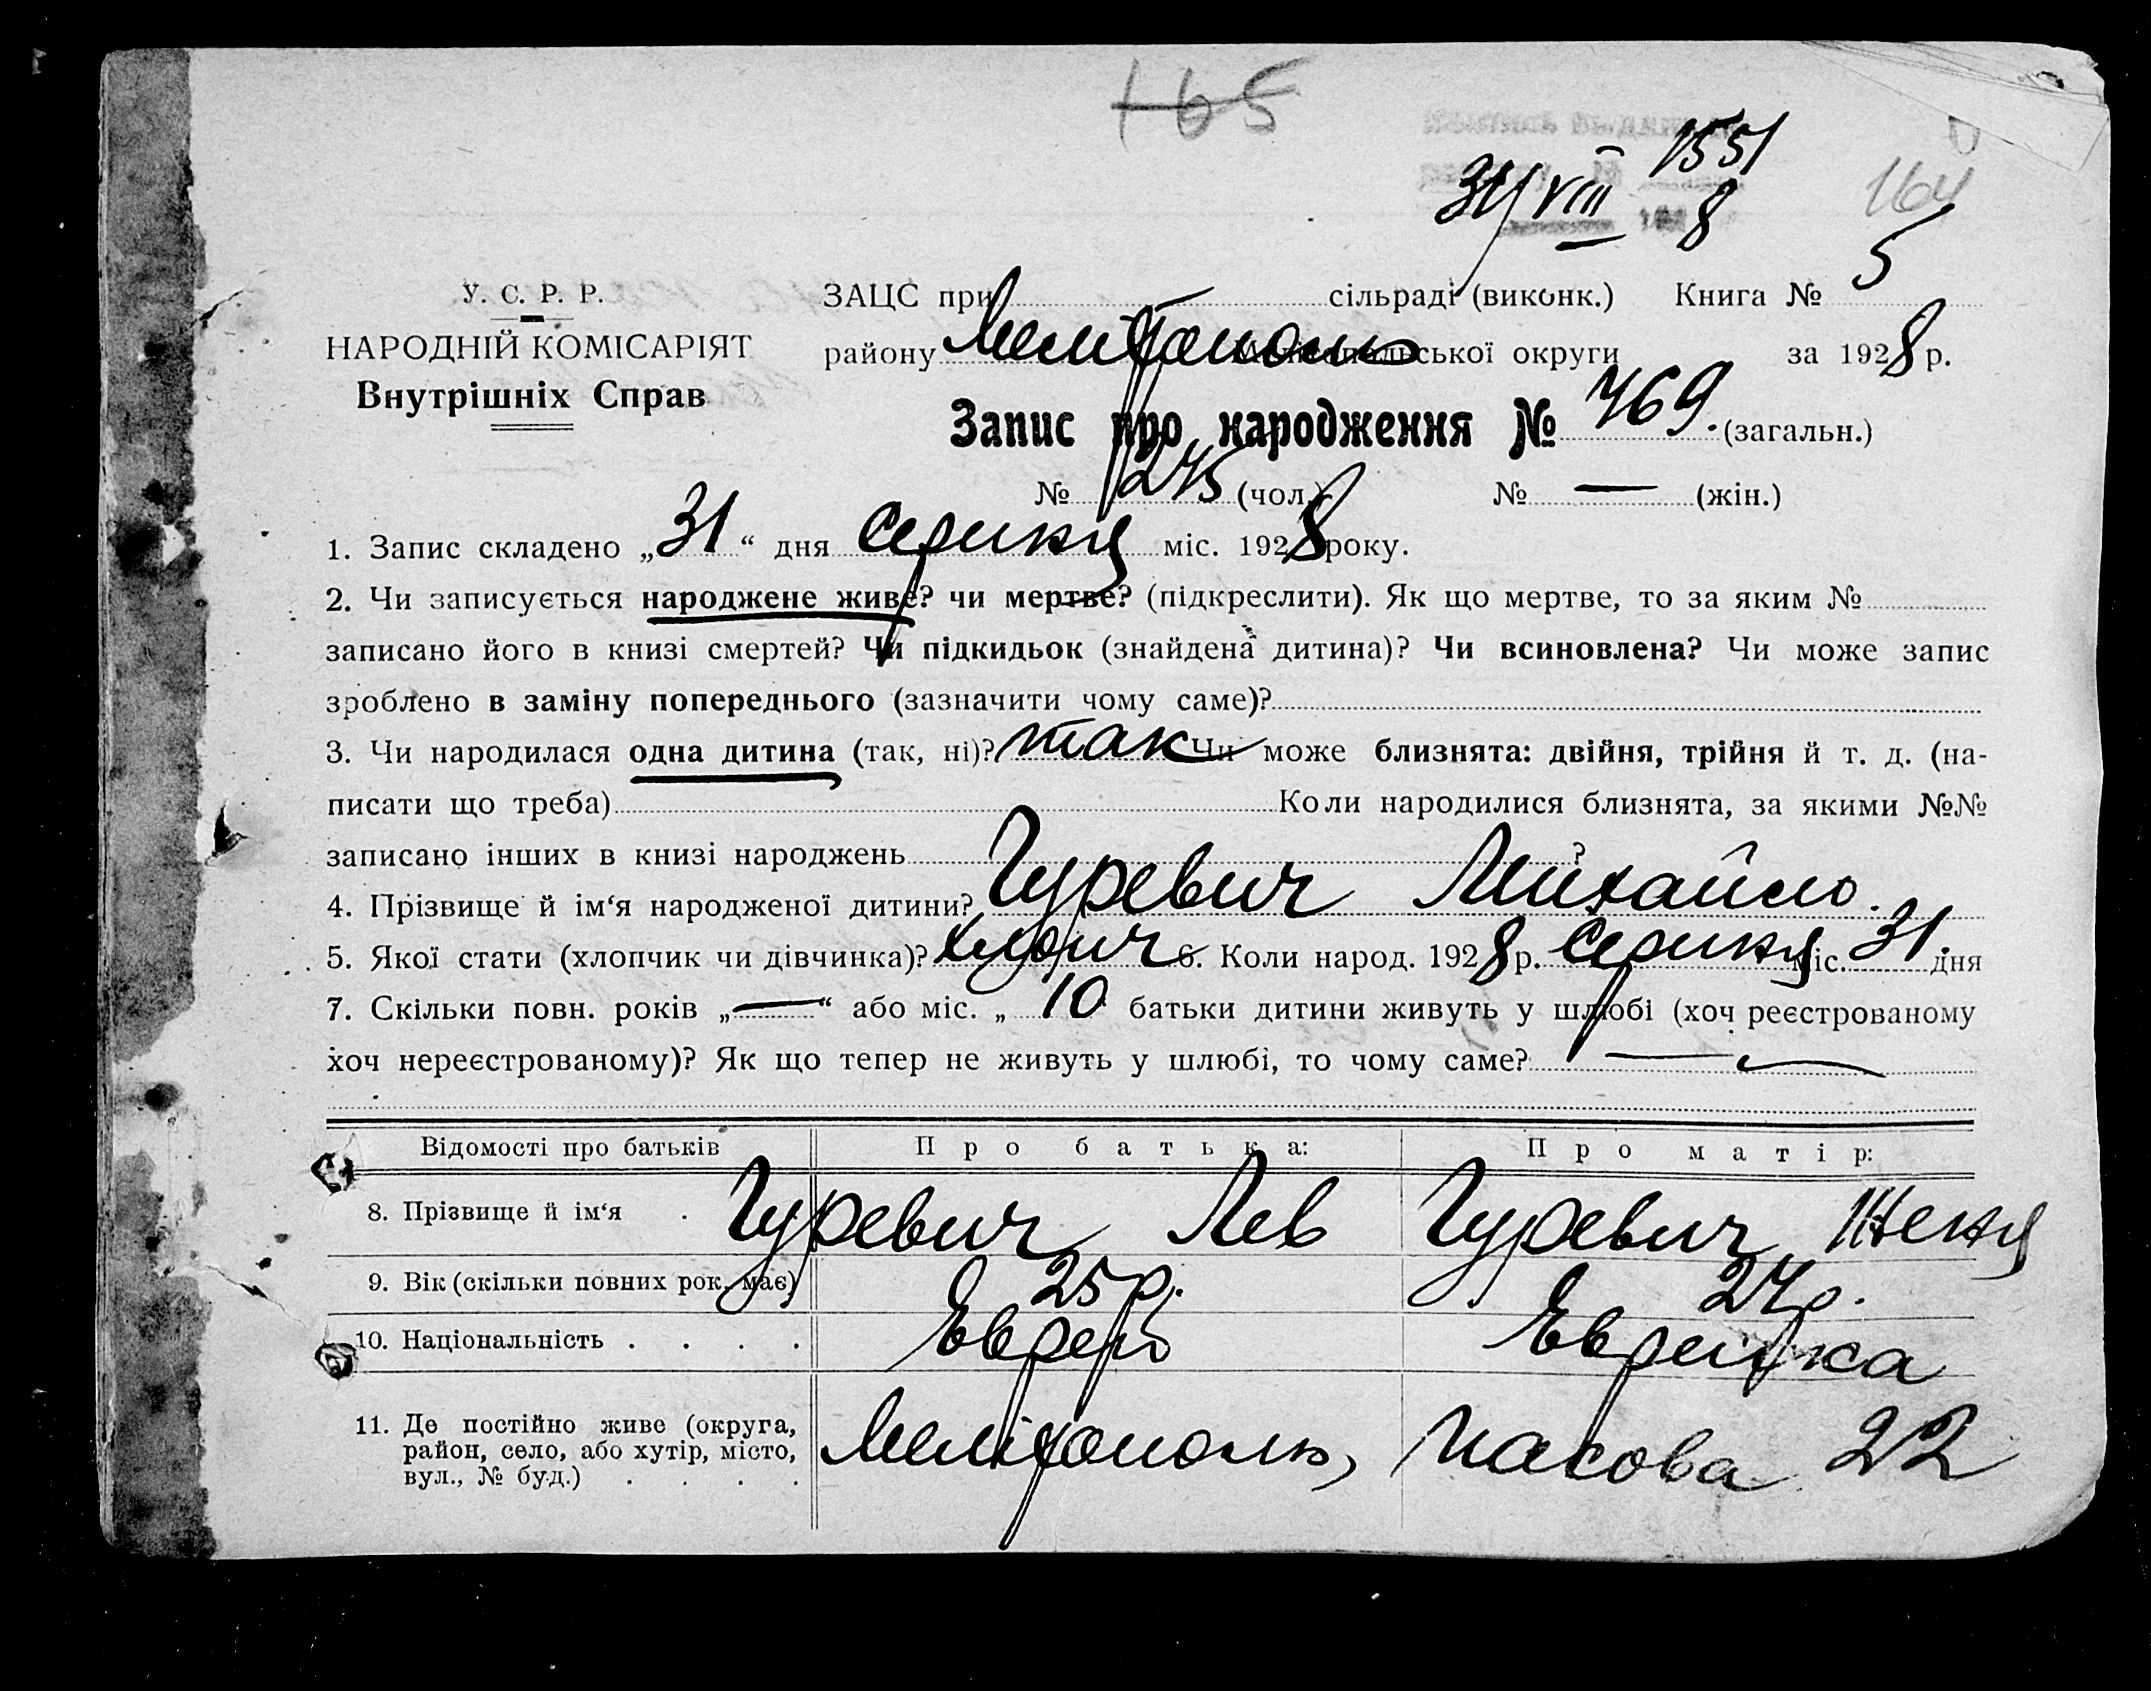 165
1551
31/VIII 8
164
У. С. Р. Р.
НАРОДНІЙ КОМІСАРІЯТ
Внутрішніх Справ
ЗАЦС при сільраді (виконк.) Книга № 5
району Мелітополь Мелітопольської округи за 1928 р.
Запис про народження № 769. (загальн.)
№ 275 (чол.) № — (жін.)
1. Запис складено „31“ дня Серпня міс. 1928 року.
2. Чи записується народжене живе? чи мертве? (підкреслити). Як що мертве, то за яким №
записано його в книзі смертей? Чи підкидьок (знайдена дитина)? Чи всиновлена? Чи може запис
зроблено в заміну попереднього (зазначити чому саме)?
3. Чи народилася одна дитина (так, ні)? так Чи може близнята: двійня, трійня й т. д. (на-
писати що треба) Коли народилися близнята, за якими №№
записано інших в книзі народжень ?
4. Прізвище й ім‘я народженої дитини? Гуревич Михайло.
5. Якої стати (хлопчик чи дівчинка)? 6. Коли народ. 1928 р. Серпня міс. 31. дня
7. Скільки повн. років „—“ або міс. „ 10 батьки дитини живуть у шлюбі (хоч реєстрованому
хоч нереєстрованому)? Як що тепер не живуть у шлюбі, то чому саме? —
Відомості про батьків Про батька: Про матір:
8. Прізвище й ім‘я . Гуревич Лев Гуревич Женя
9. Вік (скільки повних рок. має) 25 р. 24 р.
10. Національність . . . . Еврей Еврейка
11. Де постійно живе (округа,
район, село, або хутір, місто,
вул., № буд.) . . . . Мелітополь, 22